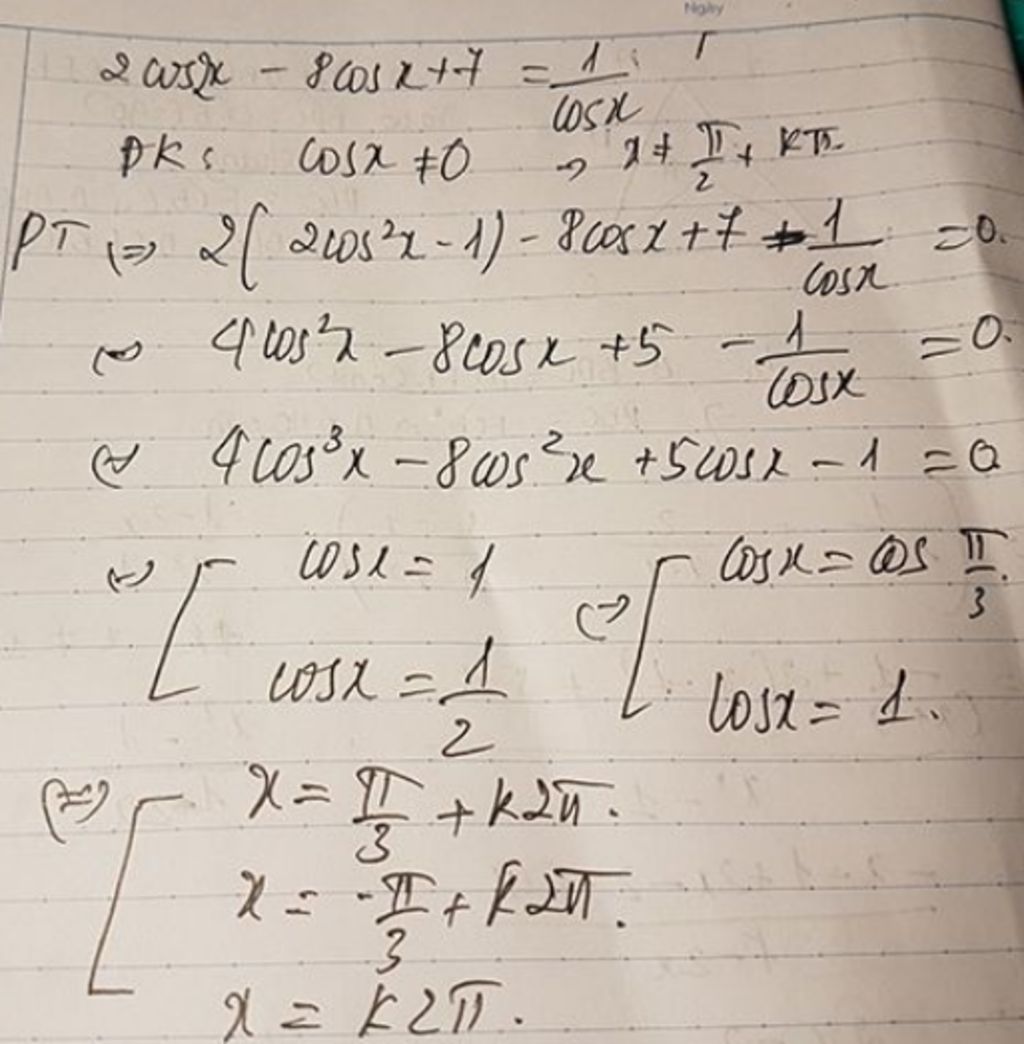 Ngày
2cos2x - 8cosx + 7 = 1/cosx
ĐK: cosx ≠ 0 → x ≠ π/2 + kπ.
PT ⇔ 2(2cos²x - 1) - 8cosx + 7 - 1/cosx = 0.
⇔ 4cos²x - 8cosx + 5 - 1/cosx = 0.
⇔ 4cos³x - 8cos²x + 5cosx - 1 = 0
⇔ [ cosx = 1 ⇔ [ cosx = cos π/3.
cosx = 1/2 cosx = 1.
⇔ [ x = π/3 + k2π.
x = -π/3 + k2π.
x = k2π.